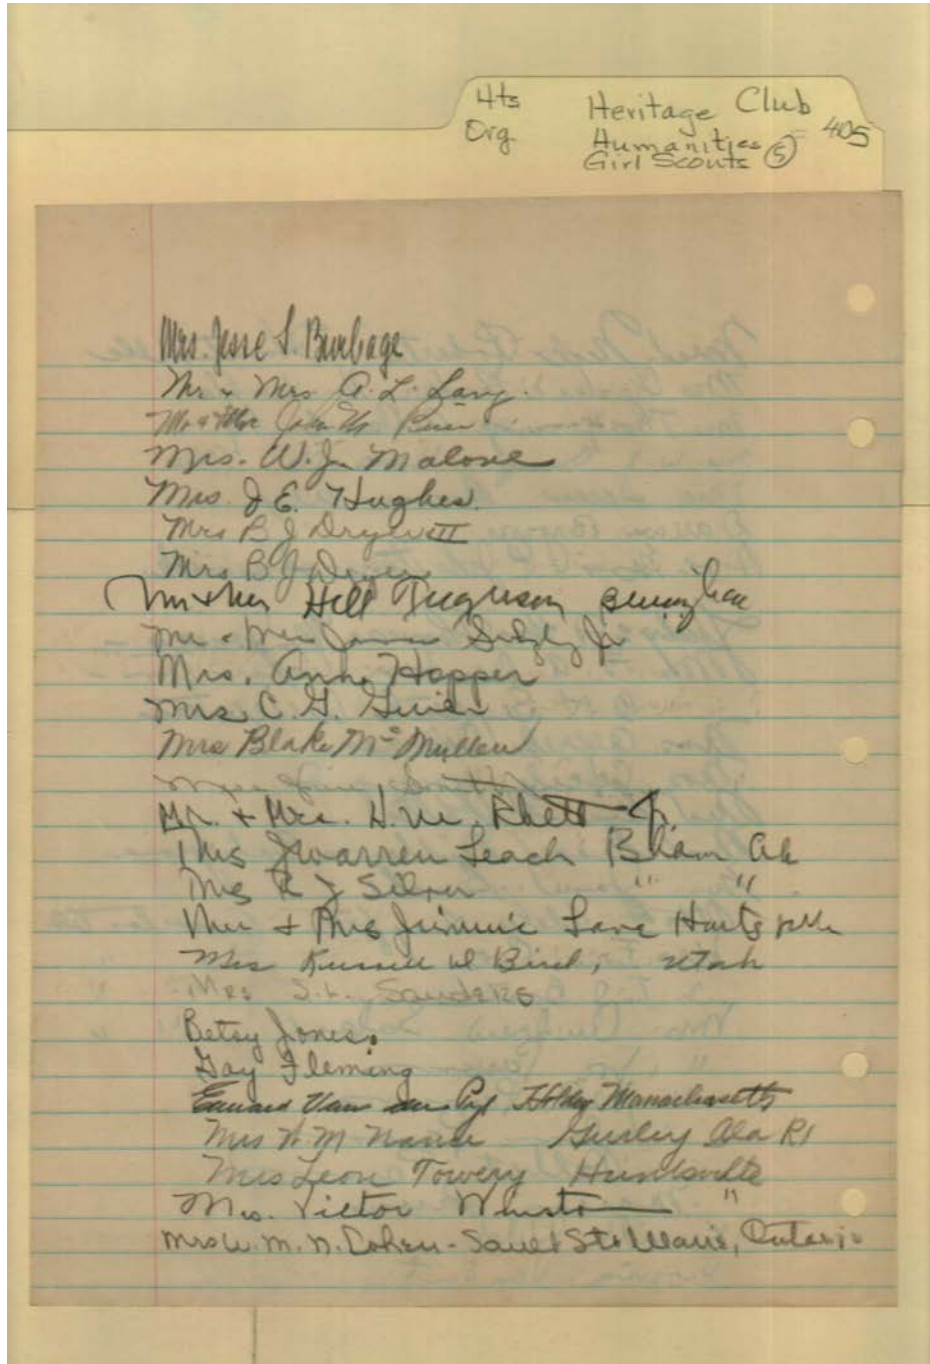 Hts Heritage Club
Org Humanities ⑤ 405
Girl Scouts
Mrs. Jesse S. Burbage
Mr & Mrs. A. L. Lang.
Mr & Mrs John
Mrs. W. J. Malone
Mrs. J E. Hughes.
Mrs B J III
Mrs B J
Hill Ferguson
Mr & Mrs Jr
Mrs. Ann Hopper
Mrs C. G.
Mrs Blake McMullen
Jim Smith
Mr. & Mrs. H. M. Rhett Jr.
Mrs J Warren Leach B'ham Ala
Mrs R J Silver " "
Mr & Mrs Jimmie
Mrs Russell D Bird, Utah
Mrs S. L. Sanders
Betsy Jones.
Gay Fleming
Edward Van der Massachusetts
Mrs W M Nance Gurley Ala R1
Mrs Leon Towery Huntsville
Mrs. Victor Winston "
Mrs W. M. N. Cohen - Sault Ste Marie, Ontario